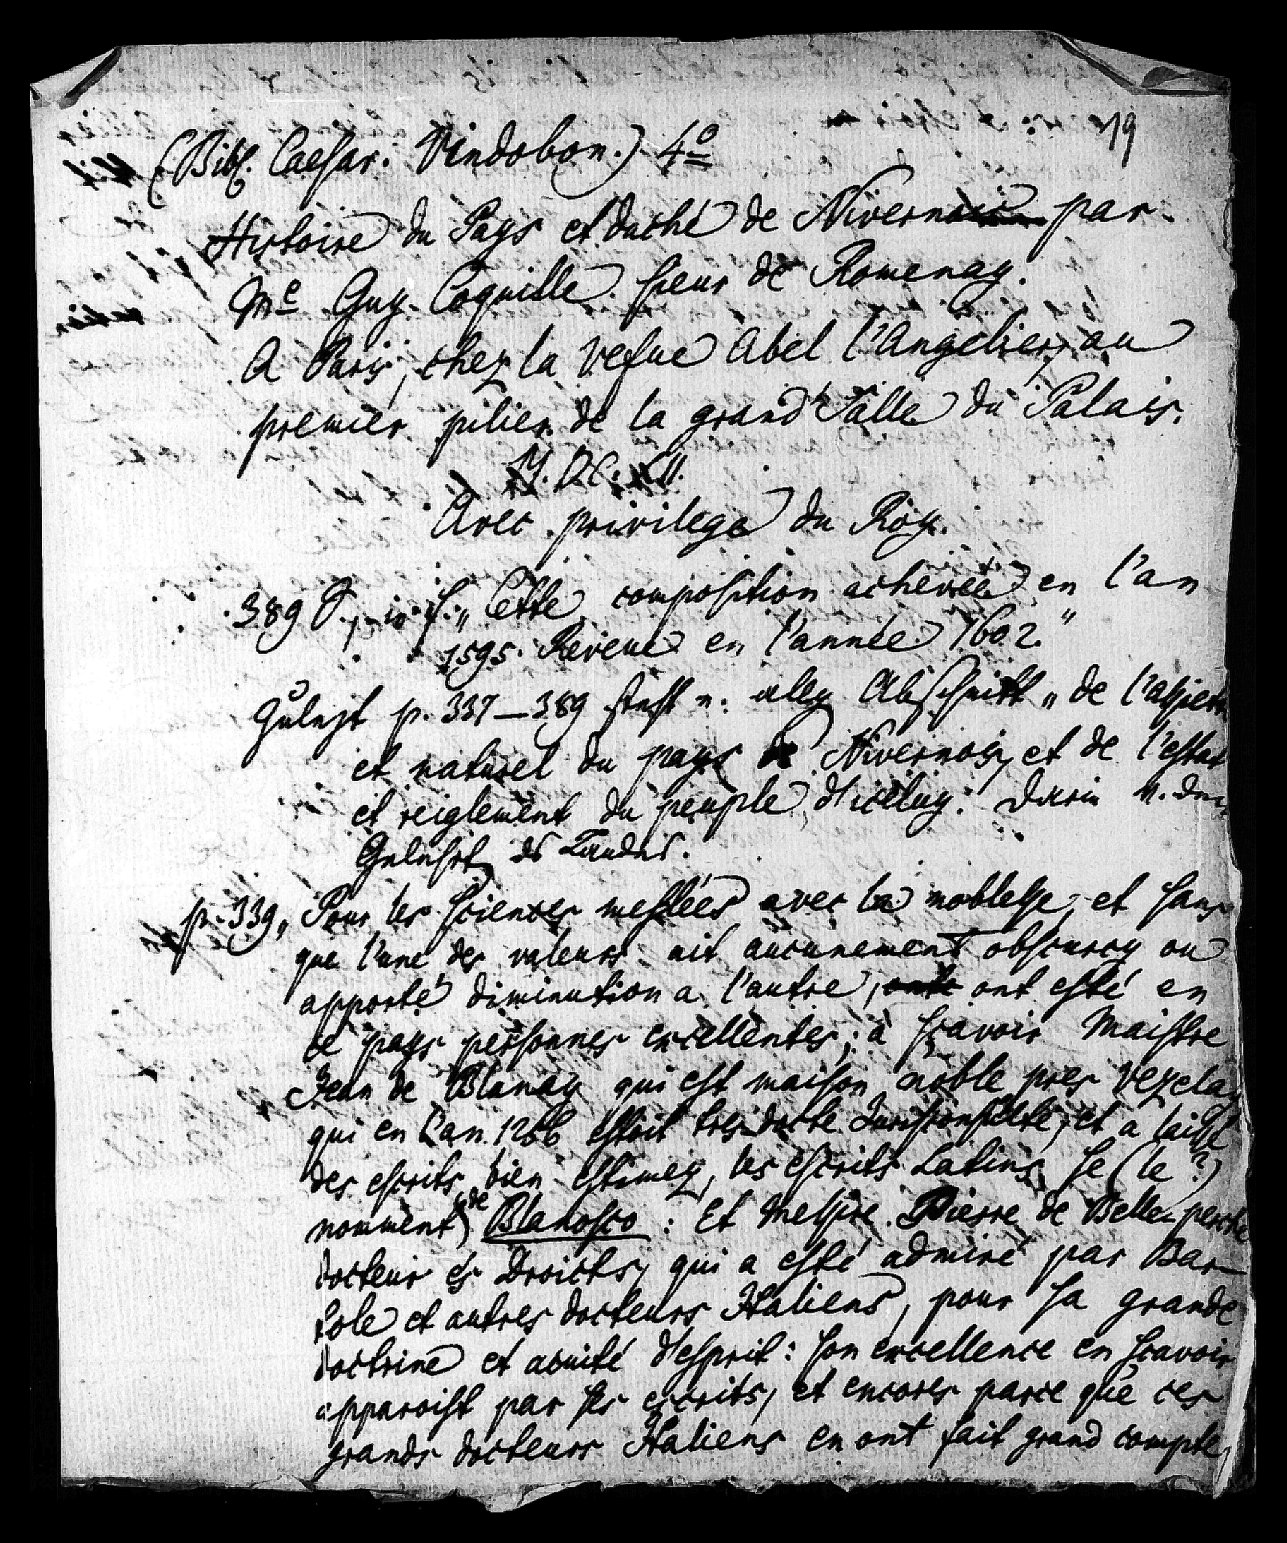 19
(Bibl. Caesar. Vindobon.) 4°
Histoire du Pays et duché de Nivernois par
Me Guy Coquille sieur de Romenay.
A Paris, chez la vefue Abel l'Angelier, au
premier pilier de la grand' Salle du Palais.
M.DC.XII.
Avec privilege du Roy.
389 S., in f. „Cette composition achevée en l'an
1595. Reveue en l'année 1602."
Zuletzt p. 337–389 steht e. Abschnitt „de l'assiete
et naturel du pays de Nivernois, et de l'estat
et reiglement du peuple d'iceluy. Darin
p. 339 „Pour les sciences meslées avec la noblesse, et sans
que l'une des valeurs ait aucunement obscurcy ou
apporté diminution a l'autre, ont esté en
ce pays personnes excellentes; à sçavoir Maistre
Jean de Blanay qui est maison noble pres Vezelay
qui en l'an 1266 estoit tres docte Jurisconsulte, et a laissé
des escrits bien estimez, les escrits Latins se (le ?)
nomment de Blanosco : Et Messire Pierre de Belle-perche
docteur és Droicts, qui a esté admiré par Bar-
tole et autres docteurs Italiens, pour sa grande
doctrine et acuité d'esprit: son excellence en sçavoir
apparoist par ses escrits, et encores parce que ces
grands docteurs Italiens en ont fait grand compte,